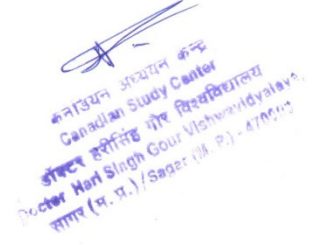 कनाडियन अध्ययन केन्द्र
Canadian Study Center
डॉक्टर हरीसिंह गौर विश्वविद्यालय
Doctor Hari Singh Gour Vishwavidyalaya,
सागर (म. प्र.)/Sagar (M. P.) - 470003